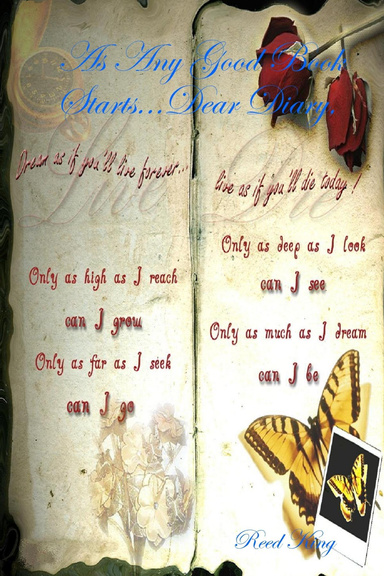 As Any Good Book
Starts...Dear Diary,
Live Die
Dream as if you'll live forever...
live as if you'll die today !
Only as high as I reach
can I grow
Only as far as I seek
can I go
Only as deep as I look
can I see
Only as much as I dream
can I be
Reed King